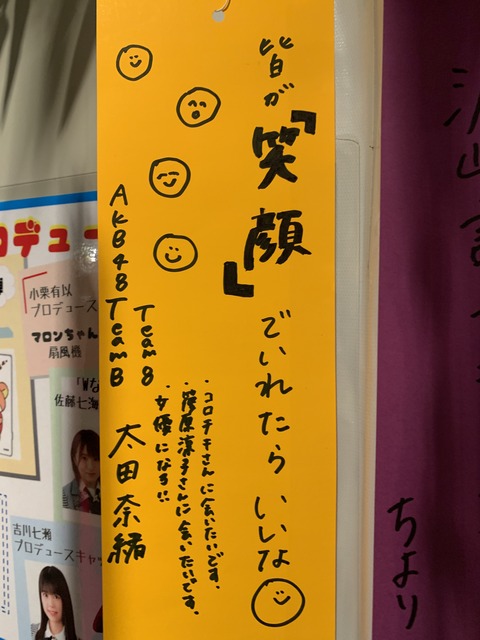 皆が『笑顔』でいれたらいいな
・コロチキさんに会いたいです。
・篠原涼子さんに会いたいです。
・女優になる!!
AKB48 Team 8
Team B
太田奈緒
小栗有以
プロデュース
マロンちゃん
扇風機
佐藤七海
吉川七瀬
プロデュースキャッ
ロデュー
ちより